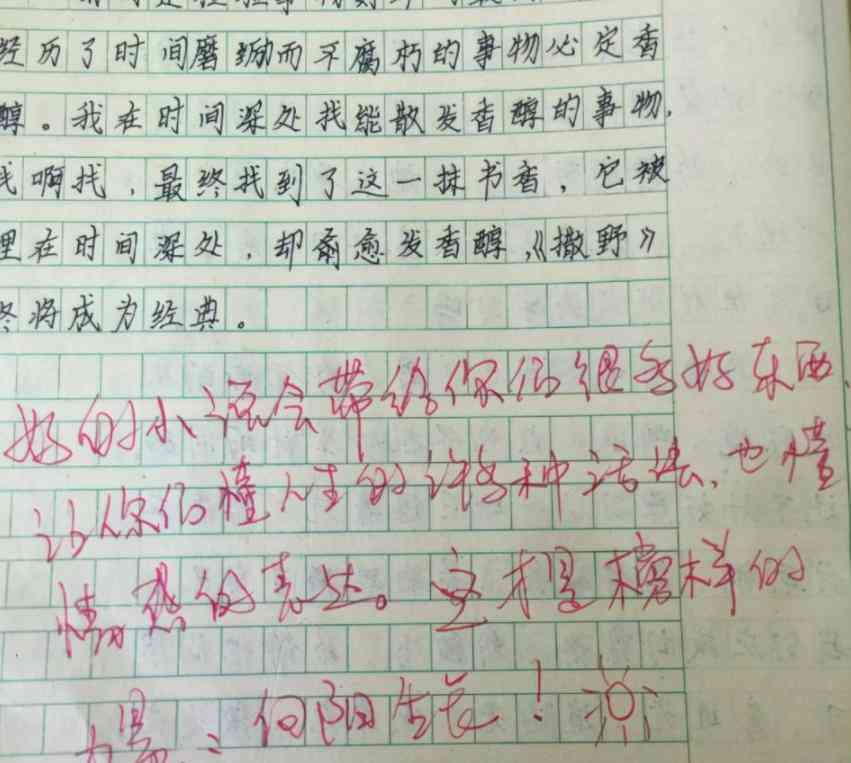 经历了时间磨励而不腐朽的事物必定香
醇。我在时间深处找能散发香醇的事物,
找啊找,最终找到了这一抹书香,它被
埋在时间深处,却愈发香醇,《撒野》
终将成为经典。
好的小说会带给你们很多好东西,
让你们懂人生的许多种活法,也懂
情感的表达。这才是榜样的
力量:向阳生长!